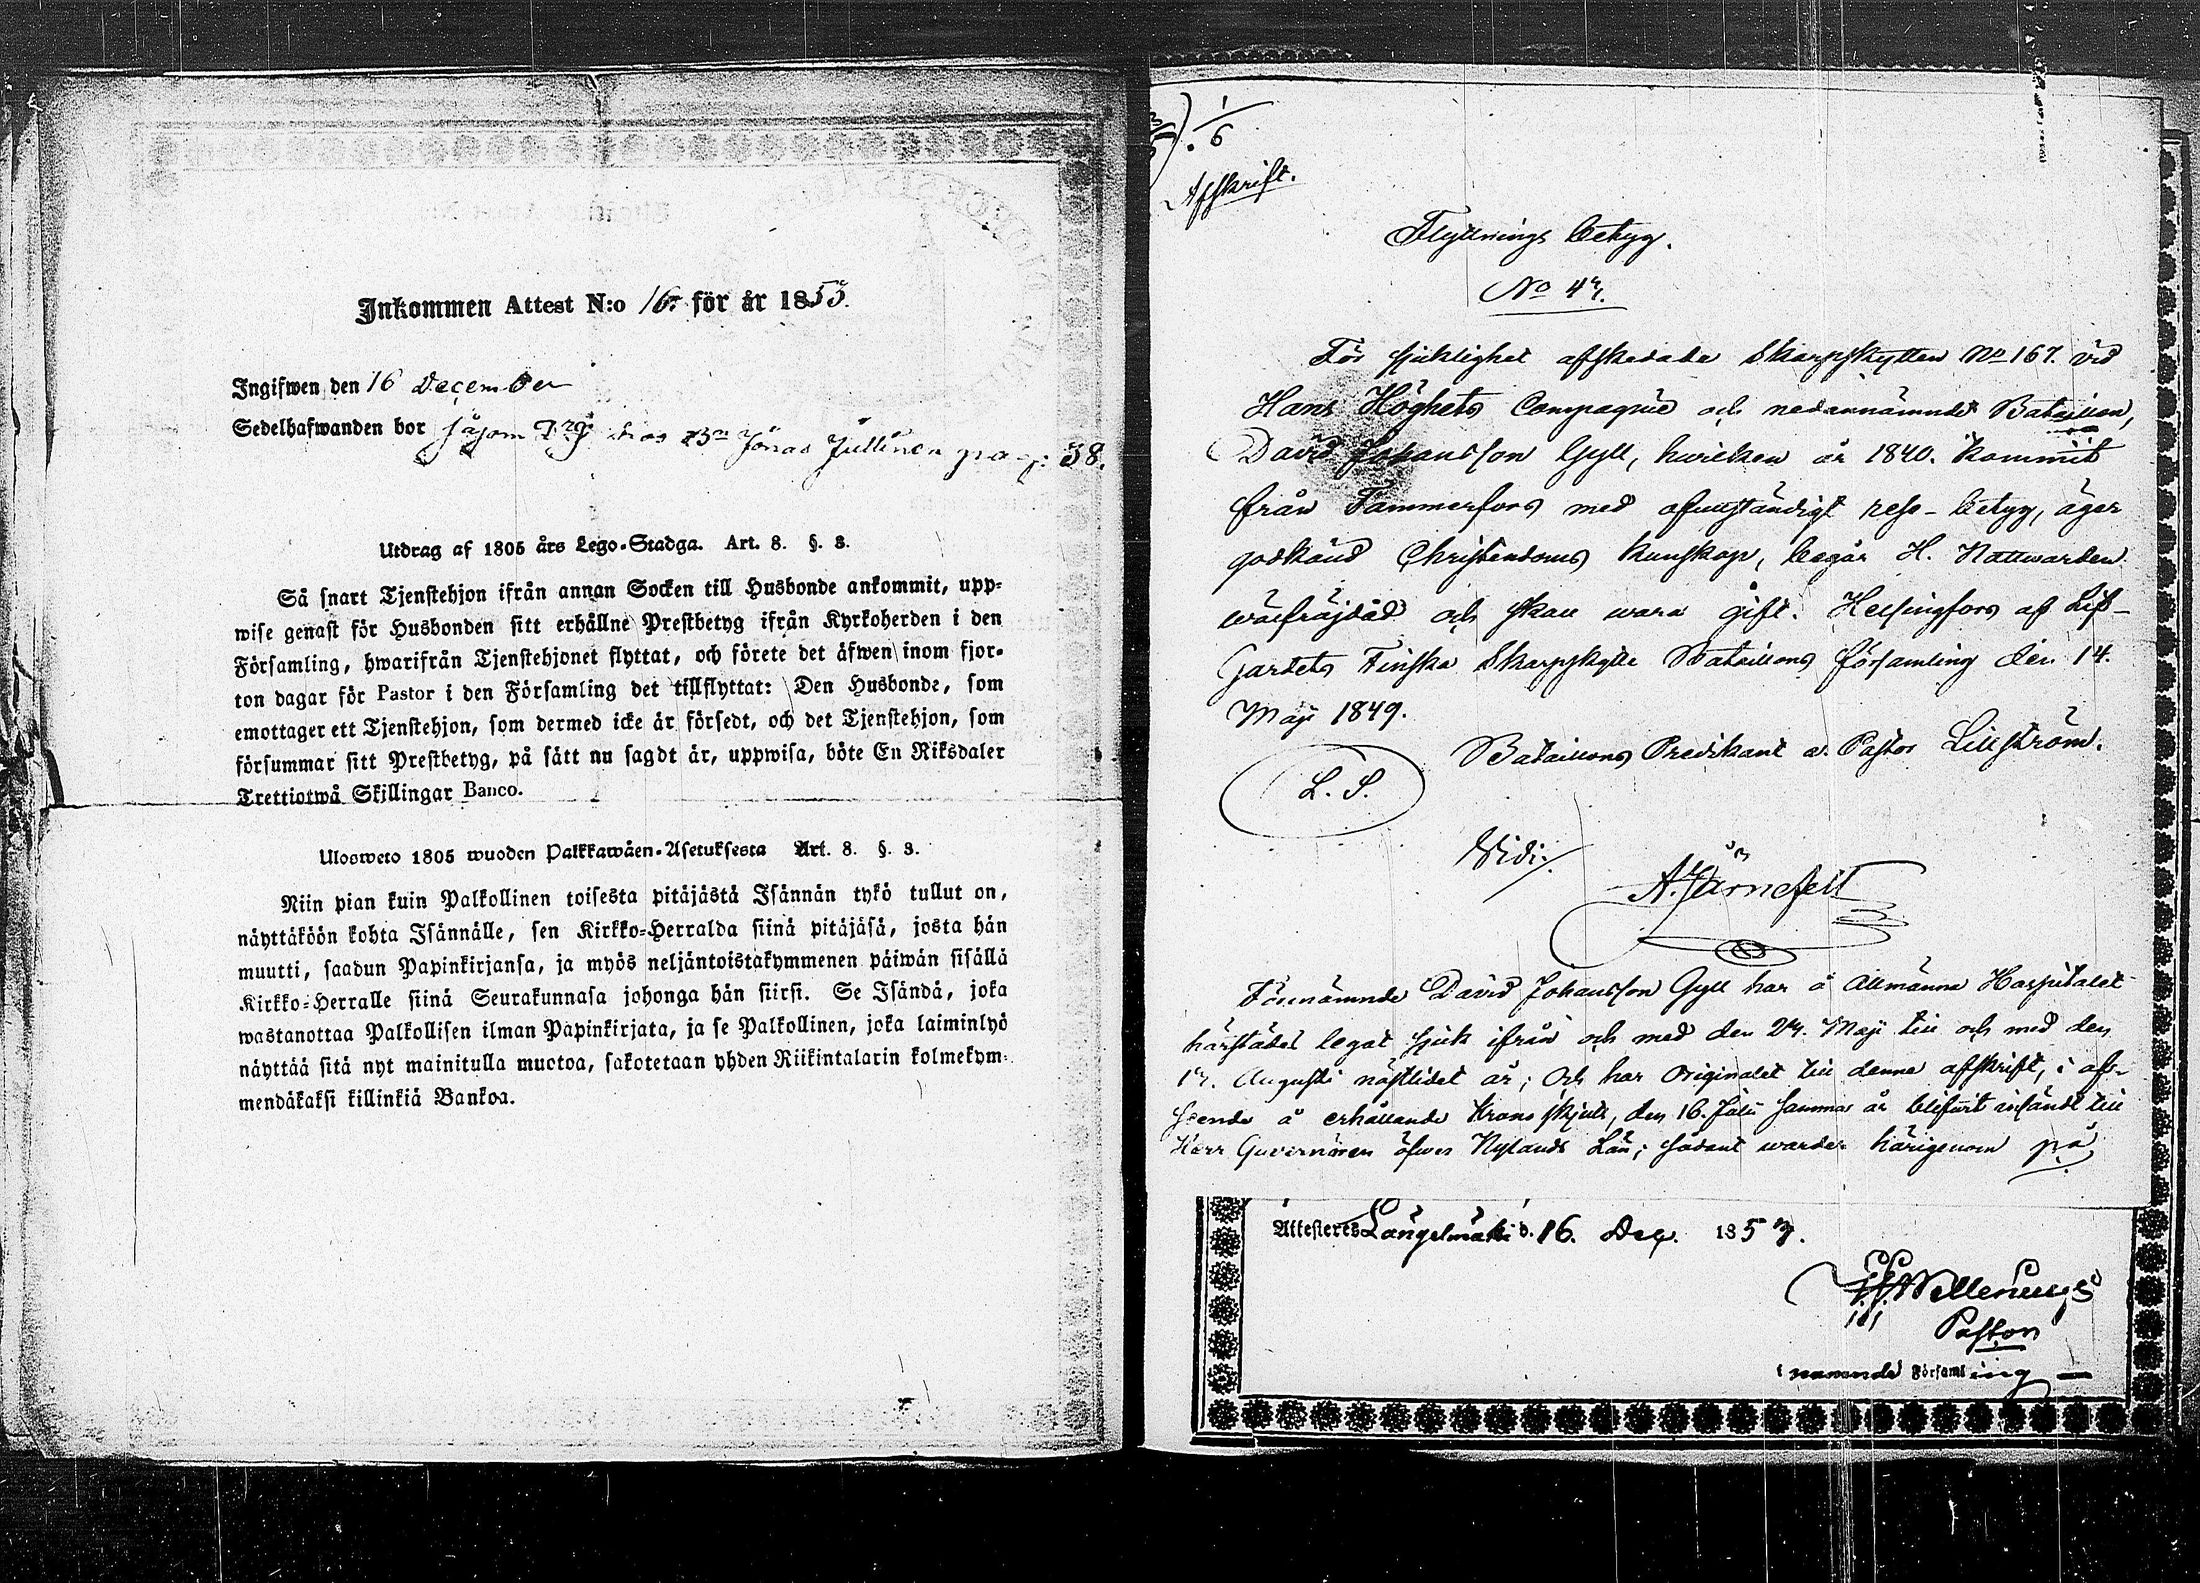 Inkommen Attest N:o 16. för år 1853.
Ingifwen den 16 December
Sedelhafwanden bor hos Jonas pag: 38.
Utdrag af 1805 års Lego-Stadga. Art. 8. §. 3.
Så snart Tjenstehjon ifrån annan Socken till Husbonde ankommit, upp-
wise genast för Husbonden sitt erhållne Prestbetyg ifrån Kyrkoherden i den
Församling, hwarifrån Tjenstehjonet flyttat, och förete det äfwen inom fjor-
ton dagar för Pastor i den Församling det tillflyttat: Den Husbonde, som
emottager ett Tjenstehjon, som dermed icke är försedt, och det Tjenstehjon, som
försummar sitt Prestbetyg, på sätt nu sagdt är, uppwisa, böte En Riksdaler
Trettiotwå Skillingar Banco.
Ulosweto 1805 wuoden Palkkawäen-Asetuksesta Art. 8. §. 3.
Niin pian kuin Palkollinen toisesta pitäjästä Isännän tykö tullut on,
näyttäköön kohta Isännälle, sen Kirkko-Herralda siinä pitäjäsä, josta hän
muutti, saadun Papinkirjansa, ja myös neljäntoistakymmenen päiwän sisällä
Kirkko-Herralle siinä Seurakunnasa johonga hän siirsi. Se Isändä, joka
wastanottaa Palkollisen ilman Papinkirjata, ja se Palkollinen, joka laiminlyö
näyttää sitä nyt mainitulla muotoa, sakotetaan yhden Riikintalarin kolmekym-
mendäkaksi killinkiä Bankoa.
1/6
Afskrift.
Flyttnings betyg.
No 47.
För sjuklighet afskedade Skarpskytten No 167. vid
Hans Höghets Compagnie och nedannämnde Bataillon,
David Johansson Gyll, hwilken år 1840. kommit
från Tammerfors med ofullständigt rese-betyg, äger
godkänd Christendoms kunskap, begår H. Nattwarden
wälfräjdad och skall wara gift. Helsingfors af Lif-
Gardets Finska Skarpskytte Bataillons församling den 14.
Maji 1849.
Bataillons Predikant a. Pastor Lillström.
L. S.
Vidi:
A. Järnefelt
Förenämnde David Johansson Gyll har å Allmänna Hospitalet
härstädes legat sjuk ifrån och med den 24. Maji till och med den
17. Augusti nästlidet år; Och har Originalet till denna afskrift, i af-
seende å erhållande Krono skjuts, den 16. Juli samma år blifwit insändt till
Herr Guvernören öfwer Nylands Län; sådant warder härigenom på
Attesteres Längelmäki d. 16. Dec. 1853.
Pastor
i namnde Församling